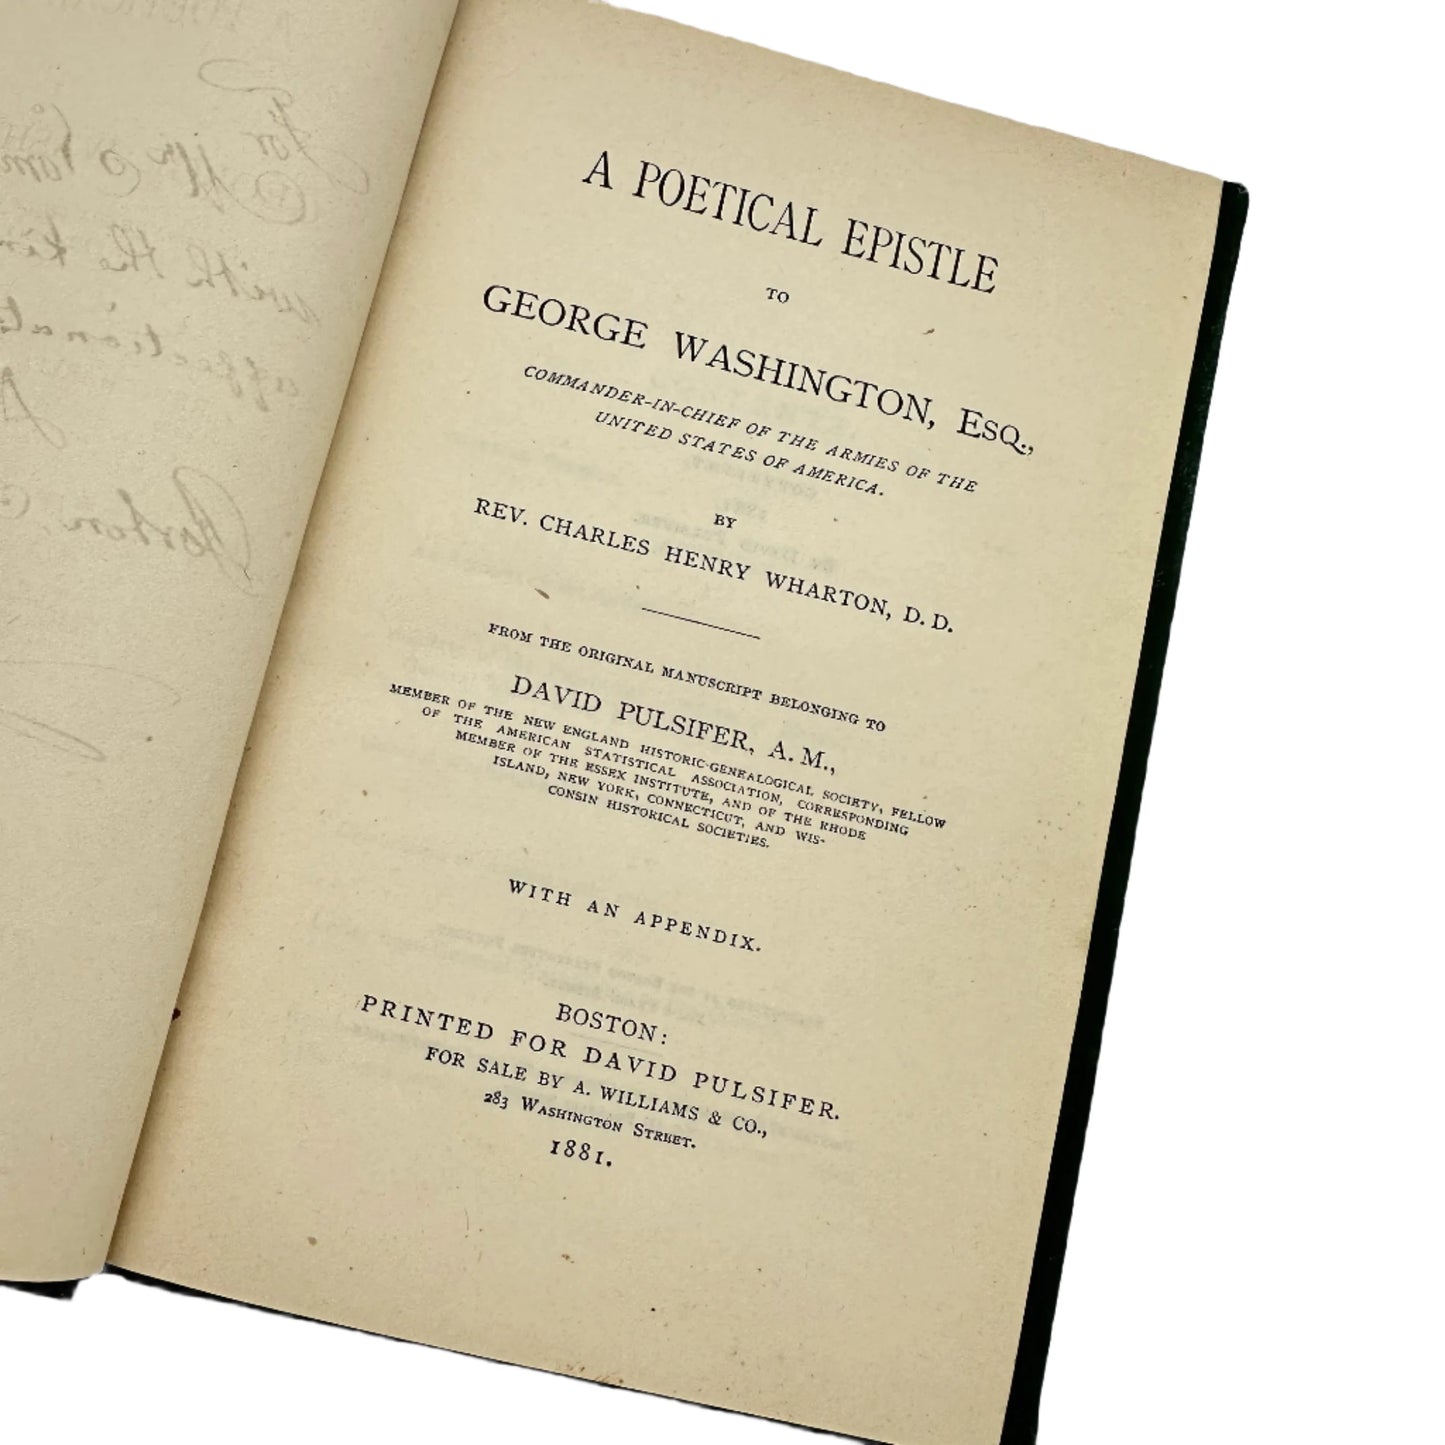 A POETICAL EPISTLE
TO
GEORGE WASHINGTON, ESQ.,
COMMANDER-IN-CHIEF OF THE ARMIES OF THE
UNITED STATES OF AMERICA.
BY
REV. CHARLES HENRY WHARTON, D. D.
FROM THE ORIGINAL MANUSCRIPT BELONGING TO
DAVID PULSIFER, A. M.,
MEMBER OF THE NEW ENGLAND HISTORIC-GENEALOGICAL SOCIETY, FELLOW
OF THE AMERICAN STATISTICAL ASSOCIATION, CORRESPONDING
MEMBER OF THE ESSEX INSTITUTE, AND OF THE RHODE
ISLAND, NEW YORK, CONNECTICUT, AND WIS-
CONSIN HISTORICAL SOCIETIES.
WITH AN APPENDIX.
BOSTON:
PRINTED FOR DAVID PULSIFER.
FOR SALE BY A. WILLIAMS & CO.,
283 WASHINGTON STREET.
1881.